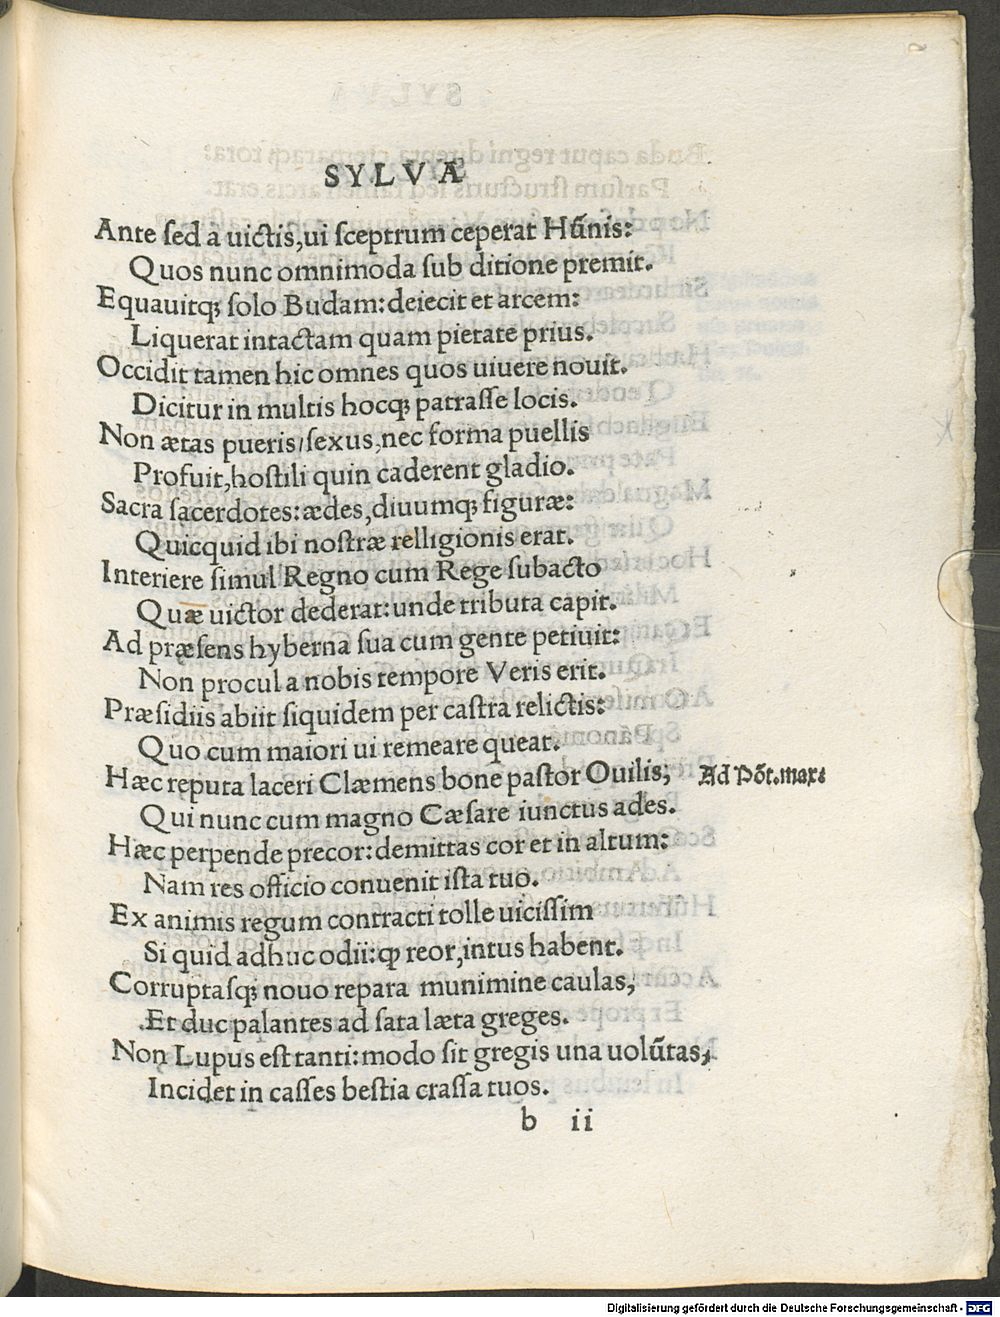 SYLVÆ
Ante ſed à uictis,ui ſceptrum ceperat Hũnis:
Quos nunc omnimoda ſub ditione premit.
Equauitq; ſolo Budam:deiecit et arcem:
Liquerat intactam quam pietate prius.
Occidit tamen hic omnes quos uiuere nouit.
Dicitur in multis hocq; patraſſe locis.
Non ætas pueris/ſexus,nec forma puellis
Profuit,hoſtili quin caderent gladio.
Sacra ſacerdotes:ædes,diuumq; figuræ:
Quicquid ibi noſtræ relligionis erat.
Interiere ſimul Regno cum Rege ſubacto
Quæ uictor dederat:unde tributa capit.
Ad præſens hyberna ſua cum gente petiuit:
Non procul a nobis tempore Veris erit.
Præſidiis abiit ſiquidem per caſtra relictis:
Quo cum maiori ui remeare queat.
Hæc reputa laceri Clæmens bone paſtor Ouilis; Ad Põt.max:
Qui nunc cum magno Cæſare iunctus ades.
Hæc perpende precor:demittas cor et in altum:
Nam res officio conuenit iſta tuo.
Ex animis regum contracti tolle uiciſſim
Si quid adhuc odii:ꝙ reor,intus habent.
Corruptaſq; nouo repara munimine caulas;
Et duc palantes ad ſata læta greges.
Non Lupus eſt tanti:modo ſit gregis una uolũtas;
Incidet in caſſes beſtia craſſa tuos.
b ii
Digitalisierung gefördert durch die Deutsche Forschungsgemeinschaft - DFG